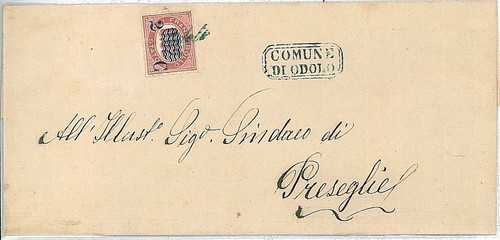 2 C
COMUNE
DI ODOLO
All' Illustr.º Sigr. Sindaco di
Preseglie